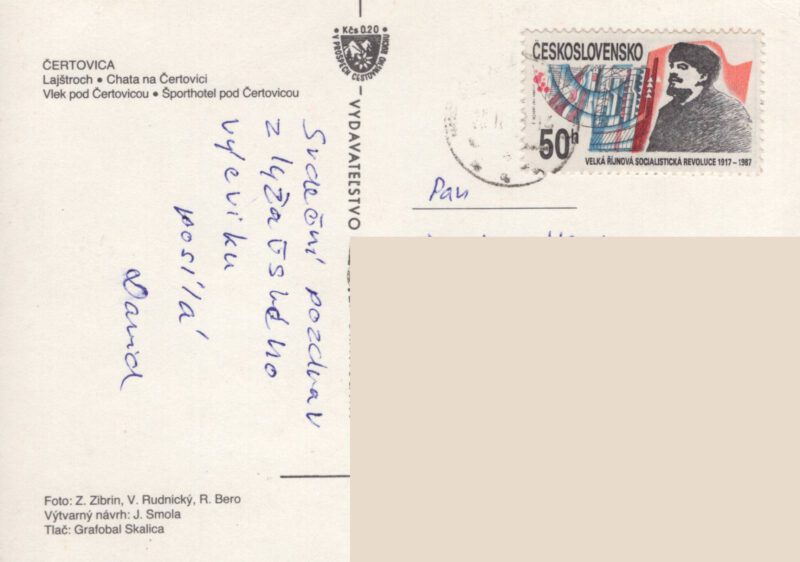 ČERTOVICA
Lajštroch • Chata na Čertovici
Vlek pod Čertovicou • Športhotel pod Čertovicou
Kčs 0.20
V PROSPECH CESTOVNÉHO RUCHU
VYDAVATEĽSTVO
ČESKOSLOVENSKO
50h
VELKÁ ŘÍJNOVÁ SOCIALISTICKÁ REVOLUCE 1917–1987
Pan
Srdeční pozdrav
z lyžařského
výcviku
posílá
David
Foto: Z. Zibrin, V. Rudnický, R. Bero
Výtvarný návrh: J. Smola
Tlač: Grafobal Skalica